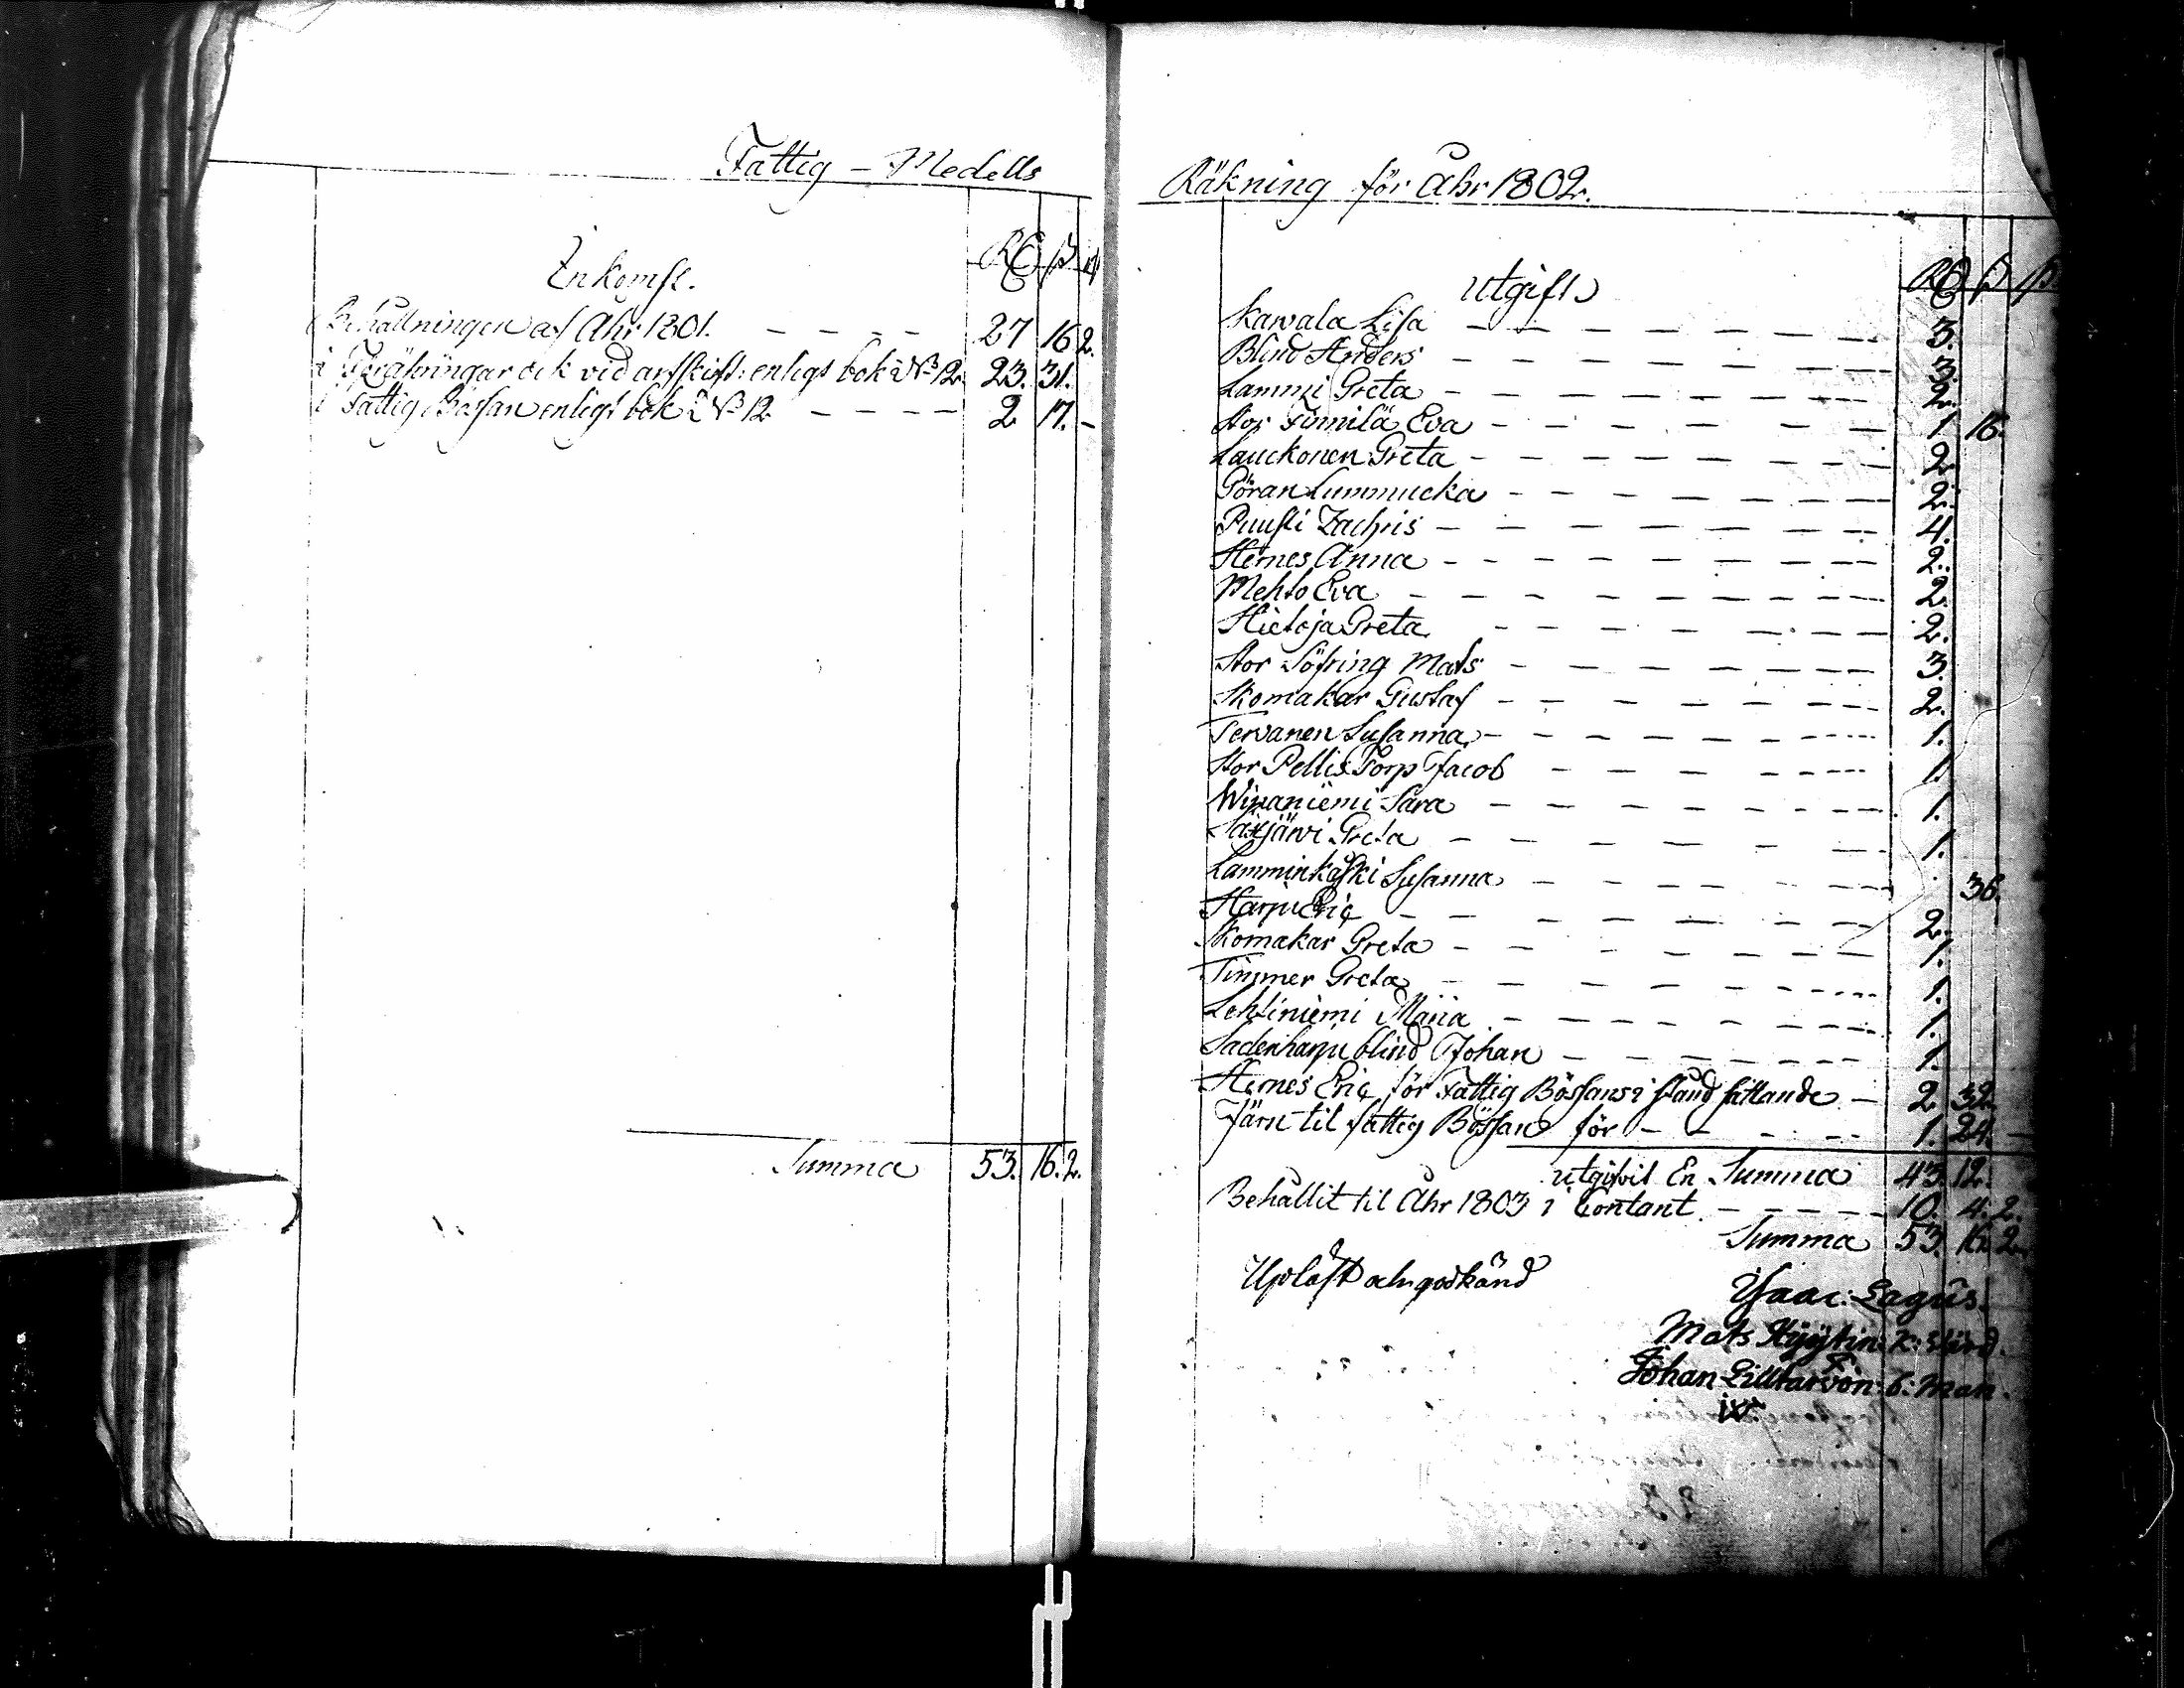 Fattig - Medells
Inkomst.
Behållningen af Ahr 1801. - - - - 27 16 2.
enligt bok N:o 12. 23. 31.
i Fattig Bössan enligt bok N:o 12 - - - - 2 17. -
Summa 53. 16. 2.
Räkning för Åhr 1802.
Utgift
Karvala Lisa - - - - - - - 3.
Blind Anders - - - - - - - 3.
Lammi Greta - - - - - - - 2.
Stor Finnilä Eva - - - - - - - 1 16.
Lauckonen Greta - - - - - - - 2
Göran Lummucka - - - - - - - 2.
Puusti Zachris - - - - - - - 4.
Hernes Anna - - - - - - - 2.
Mehto Eva - - - - - - - 2.
Hietoja Greta - - - - - - - 2.
Stor Löfring Mats - - - - - - - 3.
Skomakar Gustaf - - - - - - - 2.
Tervanen Susanna - - - - - - - 1.
Stor Pellis Torp Jacob - - - - - - 1.
Wipaniemi Sara - - - - - - - 1.
Greta - - - - - - - 1.
Lamminkoski Susanna - - - - - - 36.
Harju Eric - - - - - - - 2.
Skomakar Greta - - - - - - - 1.
Timmer Greta - - - - - - - 1.
Lehtiniemi Maria - - - - - - - 1.
Sadenharju blind Johan - - - - - - - 1.
Hernes Eric för Fattig Bössans i stand sättande - 2 32.
Järn til fattig Bössan för - - - - - 1. 24. -
utgifvit En Summa 43. 12.
Behållit til Åhr 1803 i Contant - - - - - 10. 4. 2.
Summa 53. 16. 2.
Upläst och godkänd
Isaac: Lagus.
Mats Kyÿtin: K: Värd.
Johan Lilltarvon: 6: man.